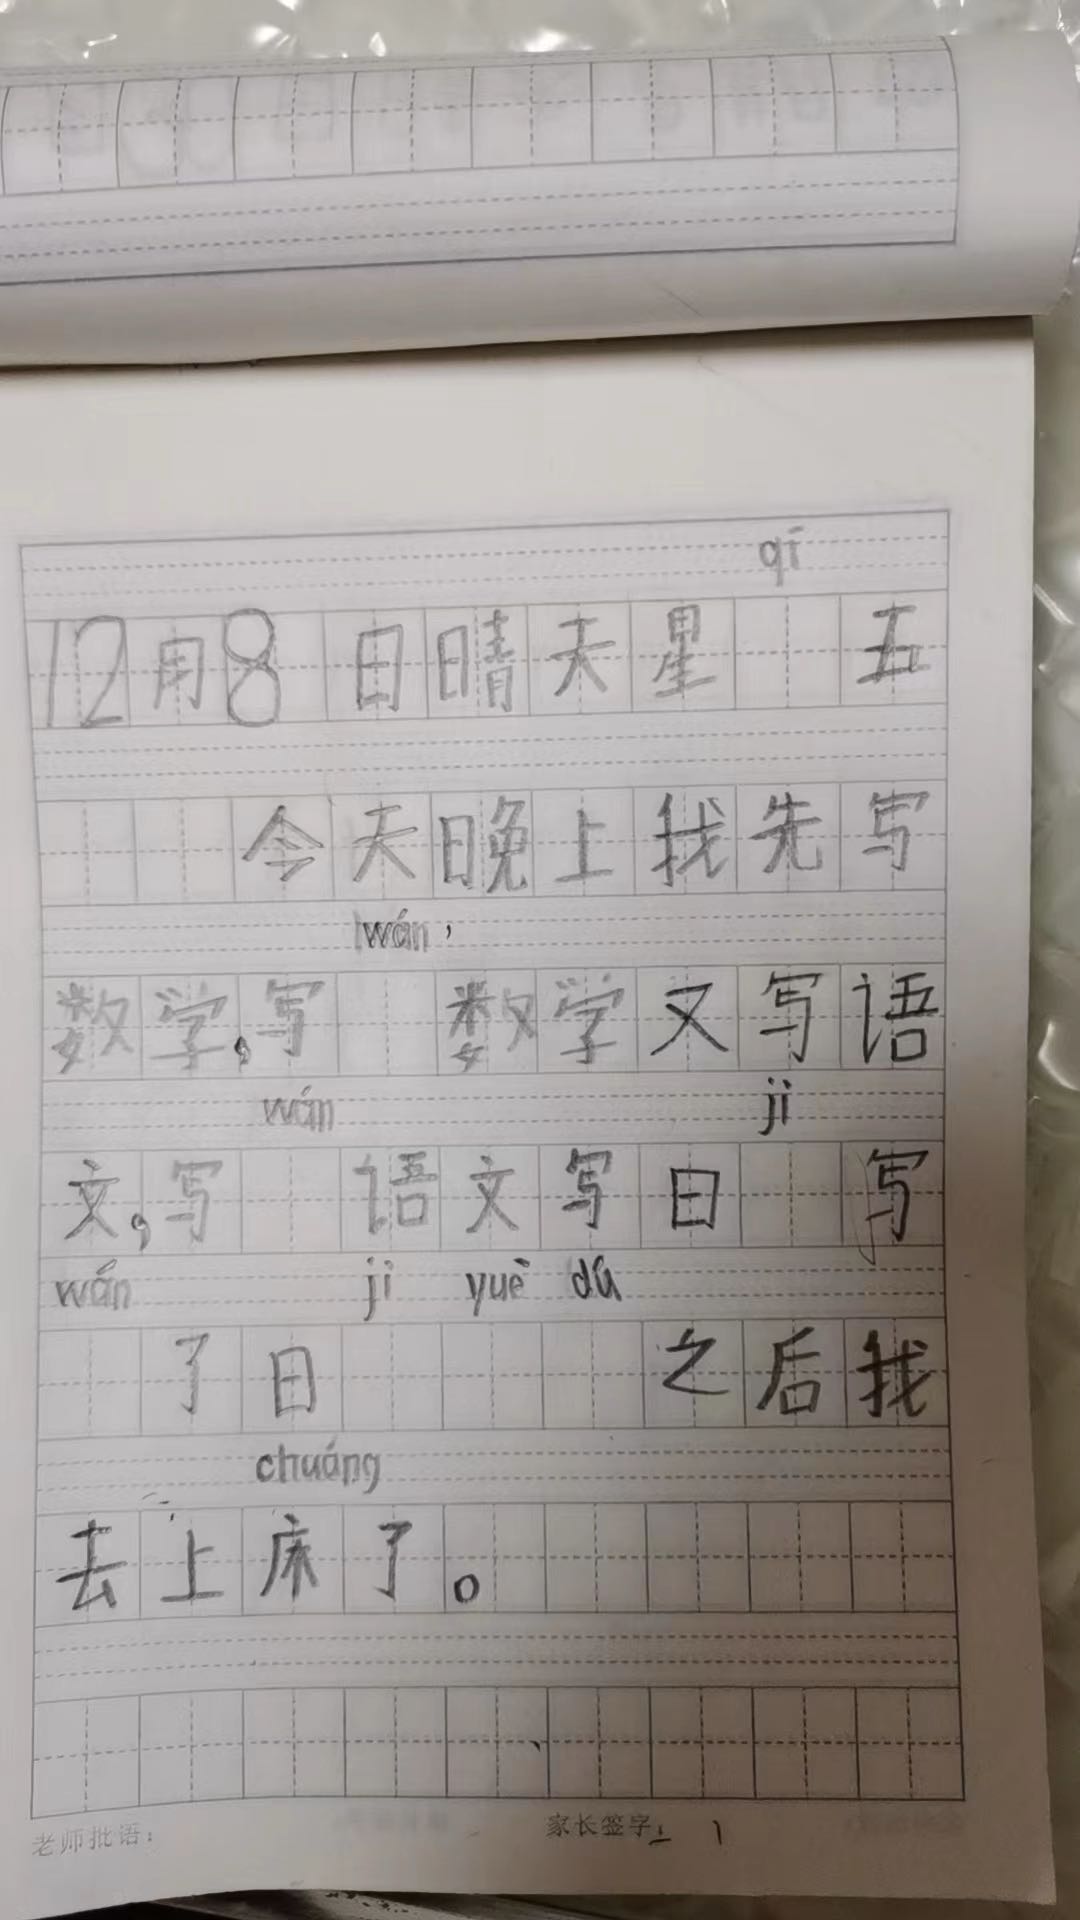 qī
12月8日晴天星 五
今天晚上我先写
wán,
数学,写 数学又写语
wán jì
文,写 语文写日 写
wán jì yuè dú
了日 之后我
chuáng
去上床了。
老师批语: 家长签字: